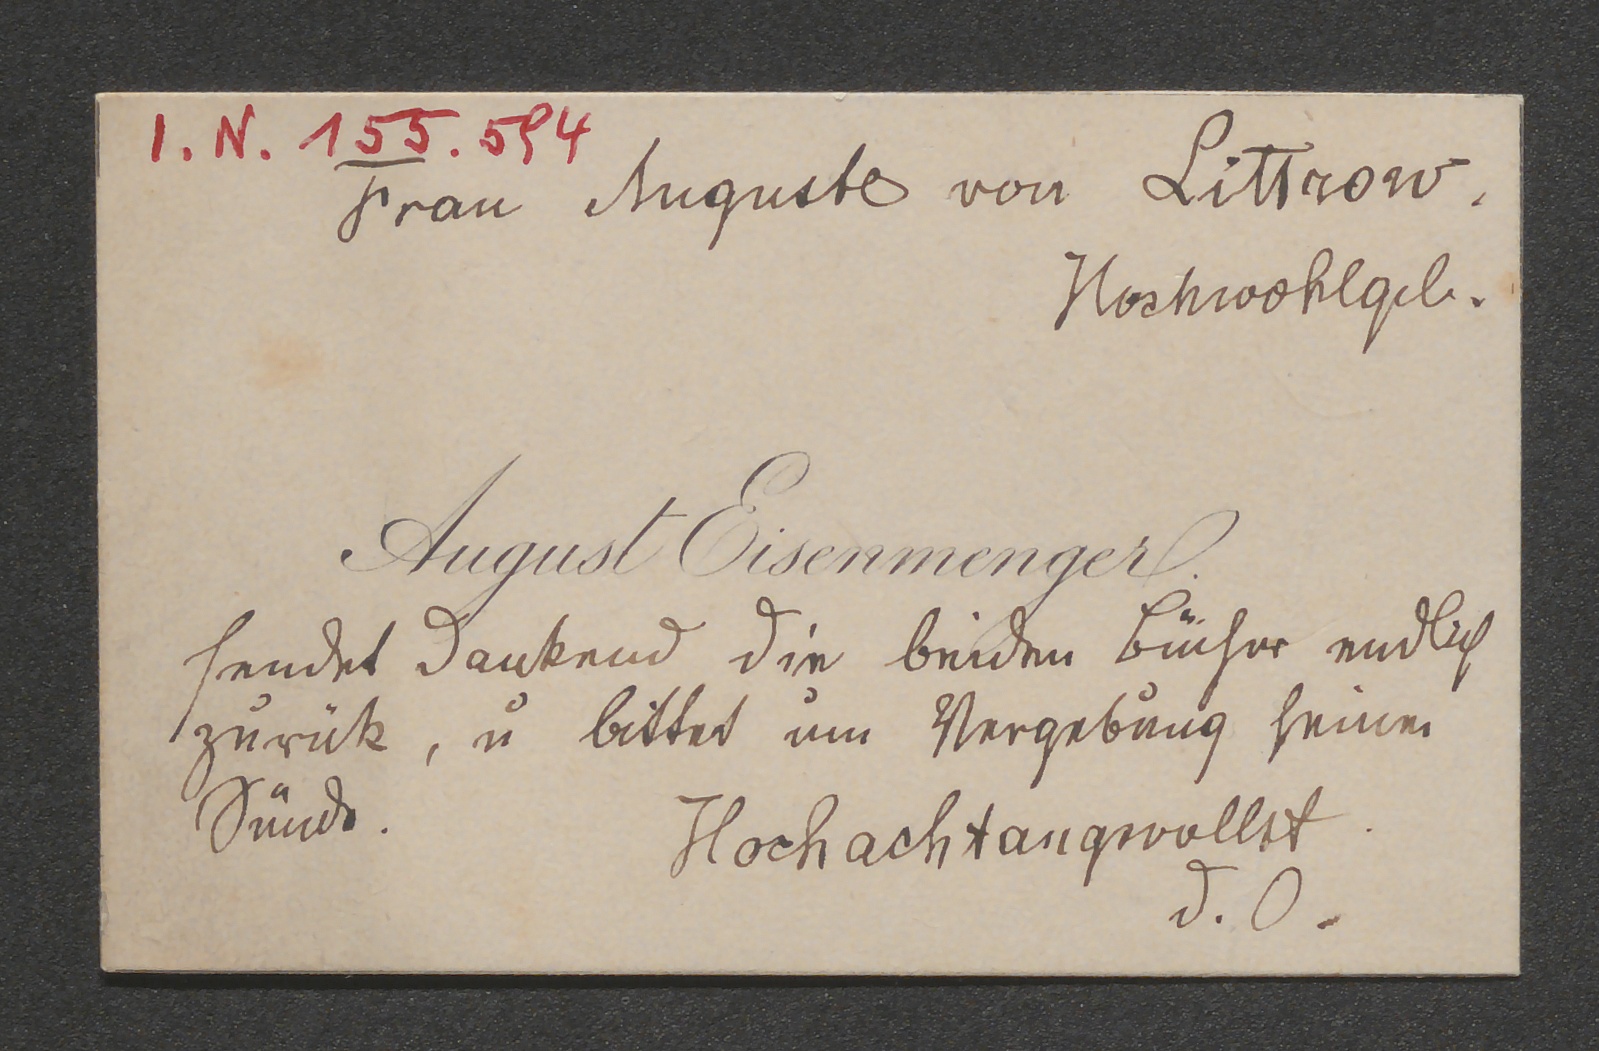 I. N. 155.594
Frau Auguste von Littrow.
Hochwohlgeb.
August Eisenmenger.
sendet dankend die beiden Bücher endlich
zurük, u bittet um Vergebung seiner
Sünde.
Hochachtungsvollst
d. O.